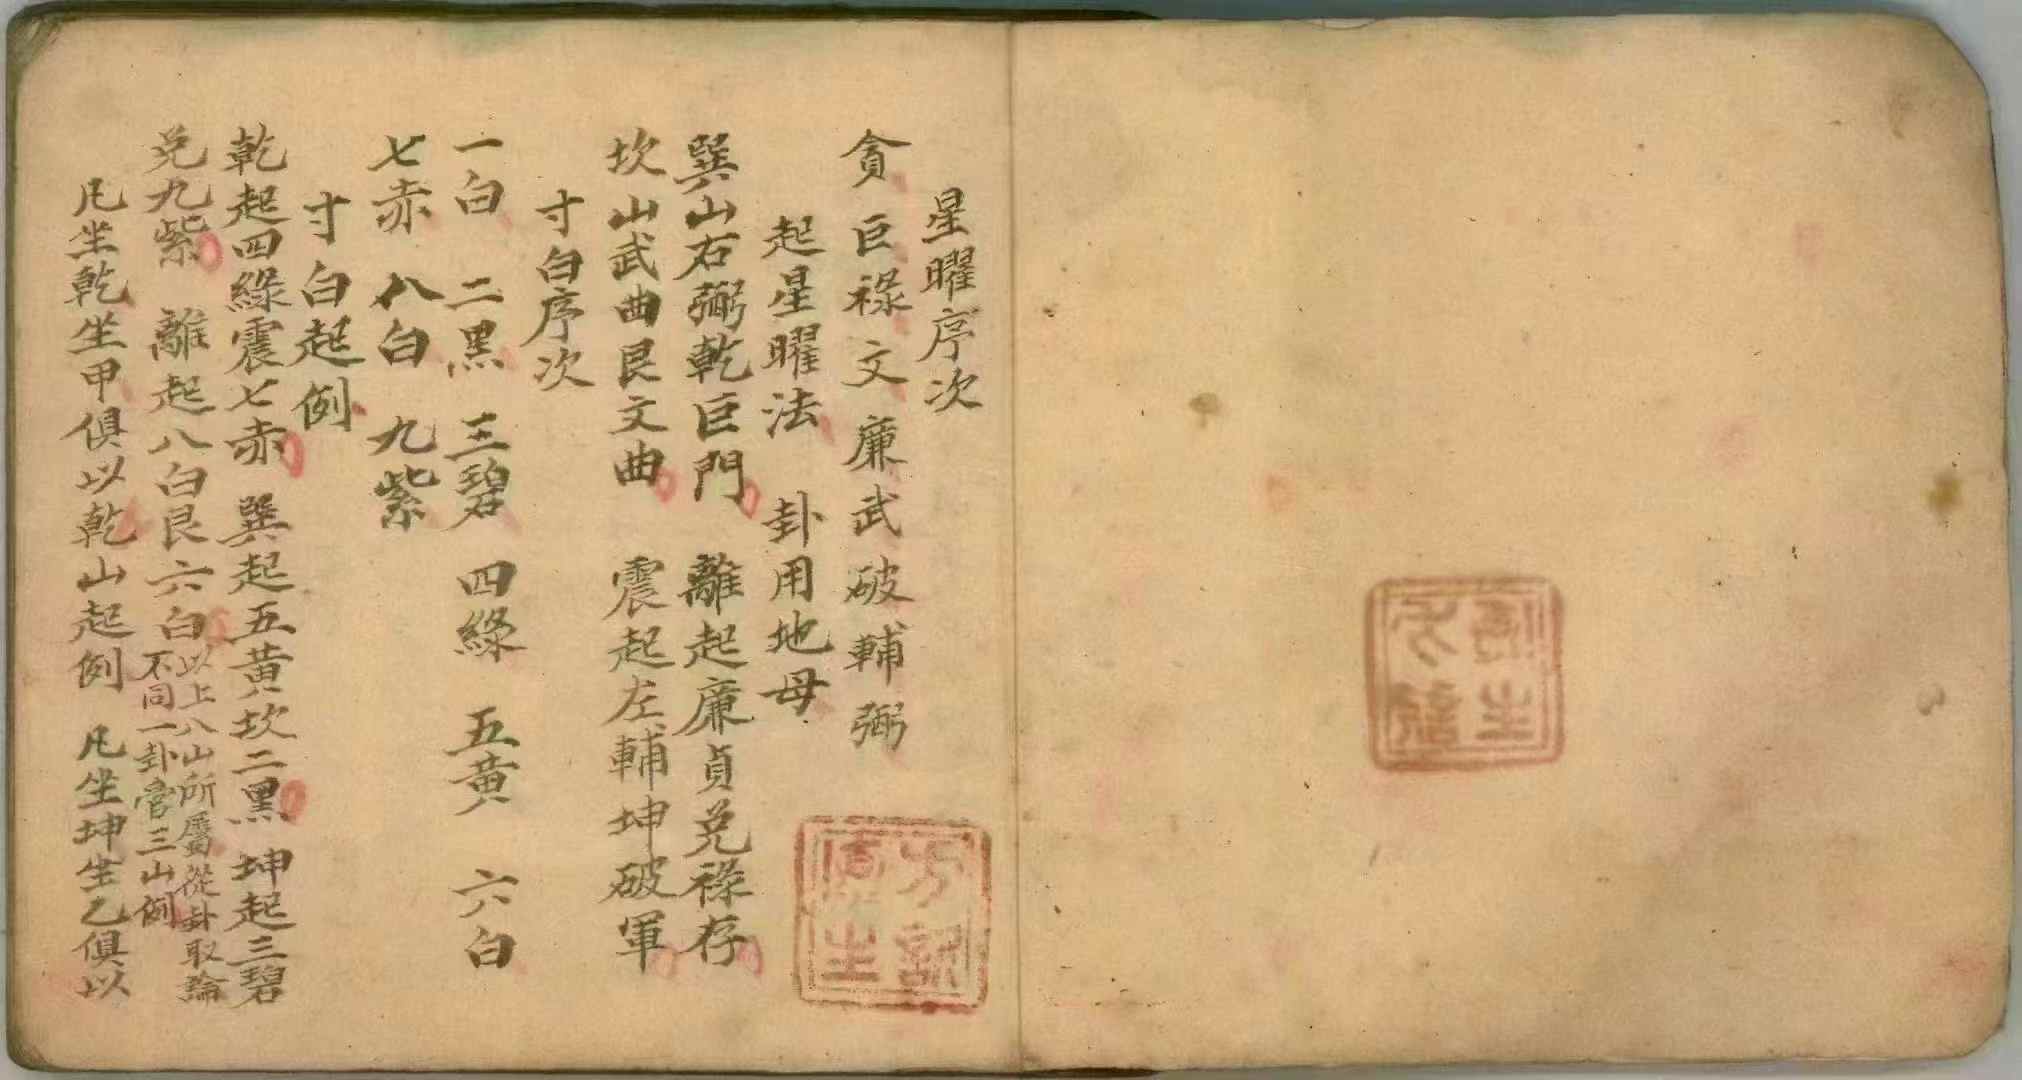 星曜序次
貪巨祿文廉武破輔弼
起星曜法　卦用地母
巽山右弼乾巨門　離起廉貞兌祿存
坎山武曲艮文曲　震起左輔坤破軍
寸白序次
一白　二黑　三碧　四綠　五黄　六白
七赤　八白　九紫
寸白起例
乾起四綠震七赤　巽起五黄坎二黑　坤起三碧
兌九紫　離起八白艮六白
以上八山所屬從卦取論
不同一卦管三山例
凡坐乾坐甲俱以乾山起例　凡坐坤坐乙俱以